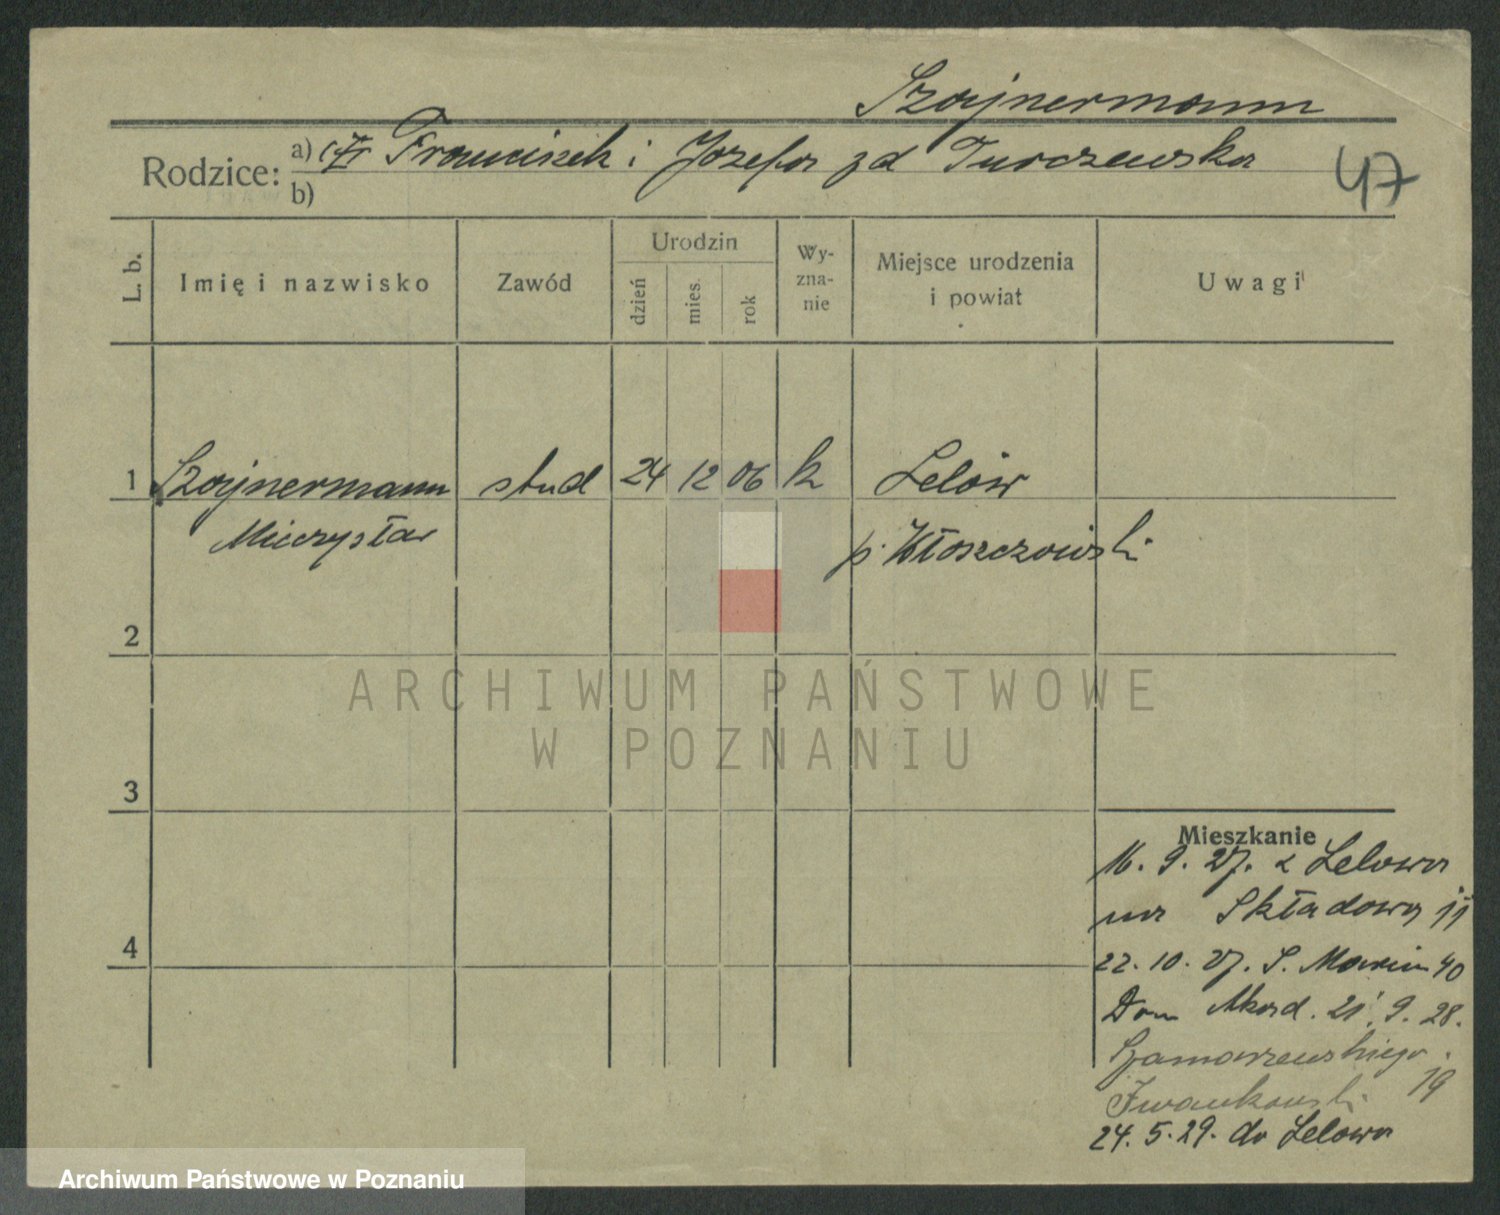 Szajnermann
Rodzice: a) Franciszek i Józefa zd Turczewska
b)
47
L. b. Imię i nazwisko Zawód Urodzin dzień mies. rok Wyznanie Miejsce urodzenia i powiat Uwagi
1 Szajnermann stud 24 12 06 k Lelów
Mieczysław p. Włoszczowski
2
ARCHIWUM PAŃSTWOWE
W POZNANIU
3
Mieszkanie
16. 9. 27. z Lelowa
na Składową 11
22. 10. 27. S. Marcin 40
Dom Akad. 21. 9. 28.
Szamarzewskiego
19
Iwankowski
4
24. 5. 29. do Lelowa
Archiwum Państwowe w Poznaniu